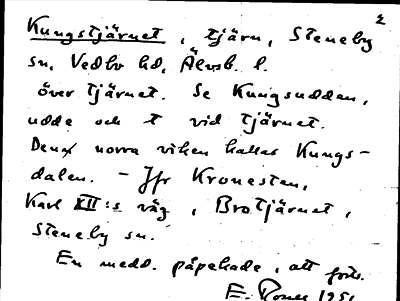 2
Kungstjärnet, tjärn, Steneby
sn, Vedbo hd, Älvsb. l.
över tjärnet. Se Kungsudden,
udde och t vid tjärnet.
Den norra viken kallas Kungs-
dalen. - Jfr Kronesten,
Karl XII:s väg, Brotjärnet,
Steneby sn.
En medd. påpekade, att
E.